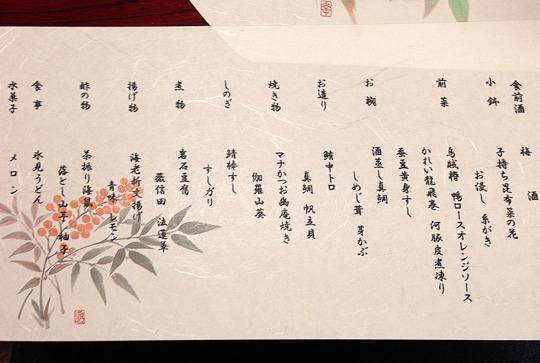 食前酒 梅酒
小鉢 子持ち昆布菜の花
お浸し 糸がき
前菜 烏賊椿 鴨ロースオレンジソース
かれい龍飛巻 河豚皮煮凍り
蚕豆黄身すし
お椀 酒蒸し真鯛
しめじ茸 芽かぶ
お造り 鮪中トロ
真鯛 帆立貝
焼き物 マナかつお幽庵焼き
伽羅山葵
しのぎ 鯖棒すし
すしガリ
煮物 岩石豆腐
飛信田 法蓮草
揚げ物 海老新丈揚げ
青味 レモン
酢の物 茶振り海鼠
落とし山芋 柚子
食事 氷見うどん
水菓子 メロン